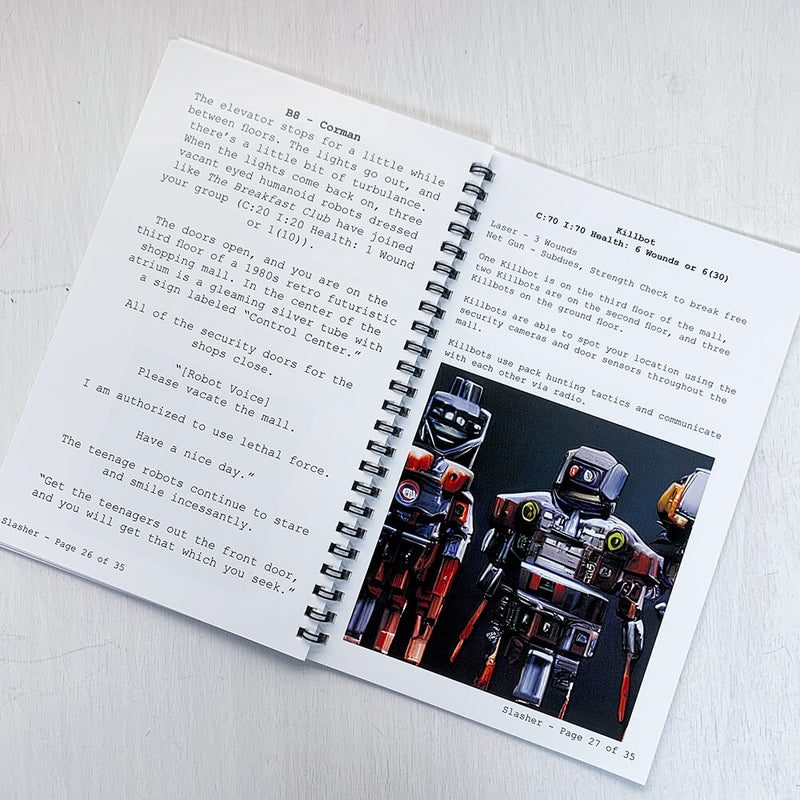 B8 - Corman
The elevator stops for a little while
between floors. The lights go out, and
there's a little bit of turbulence.
When the lights come back on, three
vacant eyed humanoid robots dressed
like The Breakfast Club have joined
your group (C:20 I:20 Health: 1 Wound
or 1(10)).
The doors open, and you are on the
third floor of a 1980s retro futuristic
shopping mall. In the center of the
atrium is a gleaming silver tube with
a sign labeled "Control Center."
All of the security doors for the
shops close.
"[Robot Voice]
Please vacate the mall.
I am authorized to use lethal force.
Have a nice day."
The teenage robots continue to stare
and smile incessantly.
"Get the teenagers out the front door,
and you will get that which you seek."
Slasher - Page 26 of 35
Killbot
C:70 I:70 Health: 6 Wounds or 6(30)
Laser - 3 Wounds
Net Gun - Subdues, Strength Check to break free
One Killbot is on the third floor of the mall,
two Killbots are on the second floor, and three
Killbots on the ground floor.
Killbots are able to spot your location using the
security cameras and door sensors throughout the
mall.
Killbots use pack hunting tactics and communicate
with each other via radio.
Slasher - Page 27 of 35